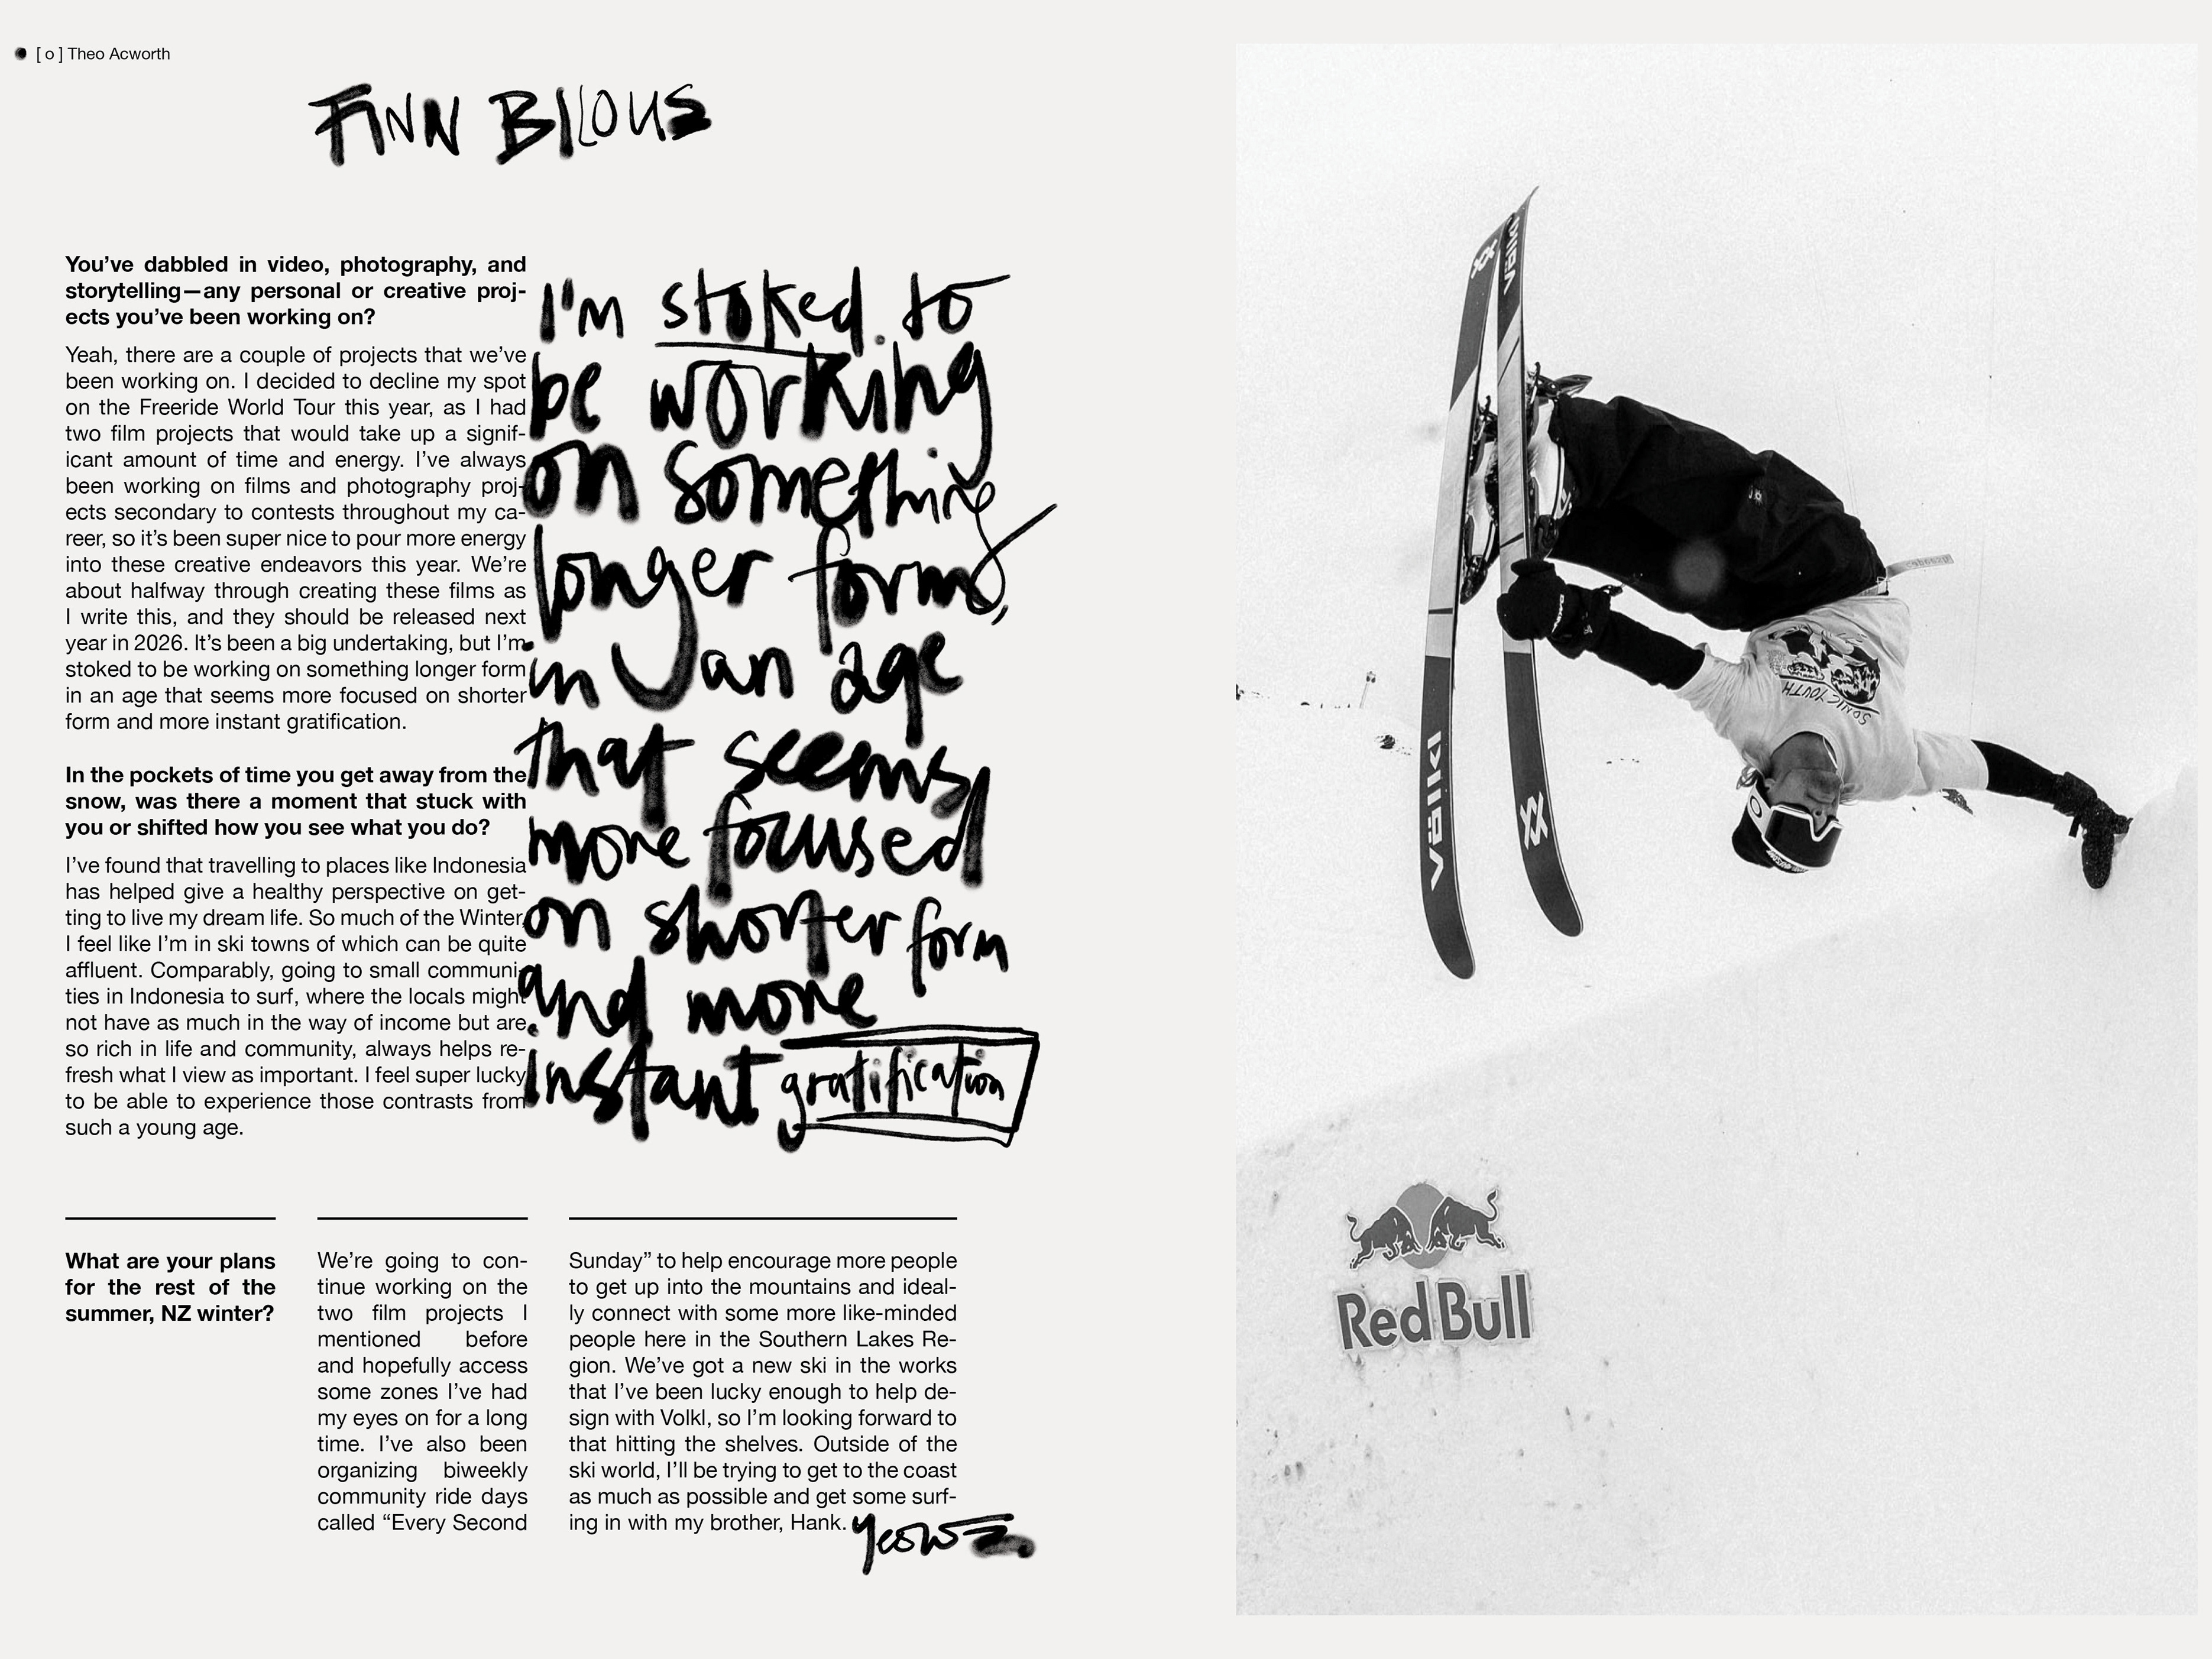 [ o ] Theo Acworth
FINN BILOUS
You’ve dabbled in video, photography, and
storytelling—any personal or creative proj-
ects you’ve been working on?
Yeah, there are a couple of projects that we’ve
been working on. I decided to decline my spot
on the Freeride World Tour this year, as I had
two film projects that would take up a signif-
icant amount of time and energy. I’ve always
been working on films and photography proj-
ects secondary to contests throughout my ca-
reer, so it’s been super nice to pour more energy
into these creative endeavors this year. We’re
about halfway through creating these films as
I write this, and they should be released next
year in 2026. It’s been a big undertaking, but I’m
stoked to be working on something longer form
in an age that seems more focused on shorter
form and more instant gratification.
In the pockets of time you get away from the
snow, was there a moment that stuck with
you or shifted how you see what you do?
I’ve found that travelling to places like Indonesia
has helped give a healthy perspective on get-
ting to live my dream life. So much of the Winter,
I feel like I’m in ski towns of which can be quite
affluent. Comparably, going to small communi-
ties in Indonesia to surf, where the locals might
not have as much in the way of income but are
so rich in life and community, always helps re-
fresh what I view as important. I feel super lucky
to be able to experience those contrasts from
such a young age.
I'm stoked to
be working
on something
longer form,
in an age
that seems
more focused
on shorter form
and more
instant gratification
What are your plans
for the rest of the
summer, NZ winter?
We’re going to con-
tinue working on the
two film projects I
mentioned before
and hopefully access
some zones I’ve had
my eyes on for a long
time. I’ve also been
organizing biweekly
community ride days
called “Every Second
Sunday” to help encourage more people
to get up into the mountains and ideal-
ly connect with some more like-minded
people here in the Southern Lakes Re-
gion. We’ve got a new ski in the works
that I’ve been lucky enough to help de-
sign with Volkl, so I’m looking forward to
that hitting the shelves. Outside of the
ski world, I’ll be trying to get to the coast
as much as possible and get some surf-
ing in with my brother, Hank.
völkl
völkl
SONIC YOUTH
Red Bull